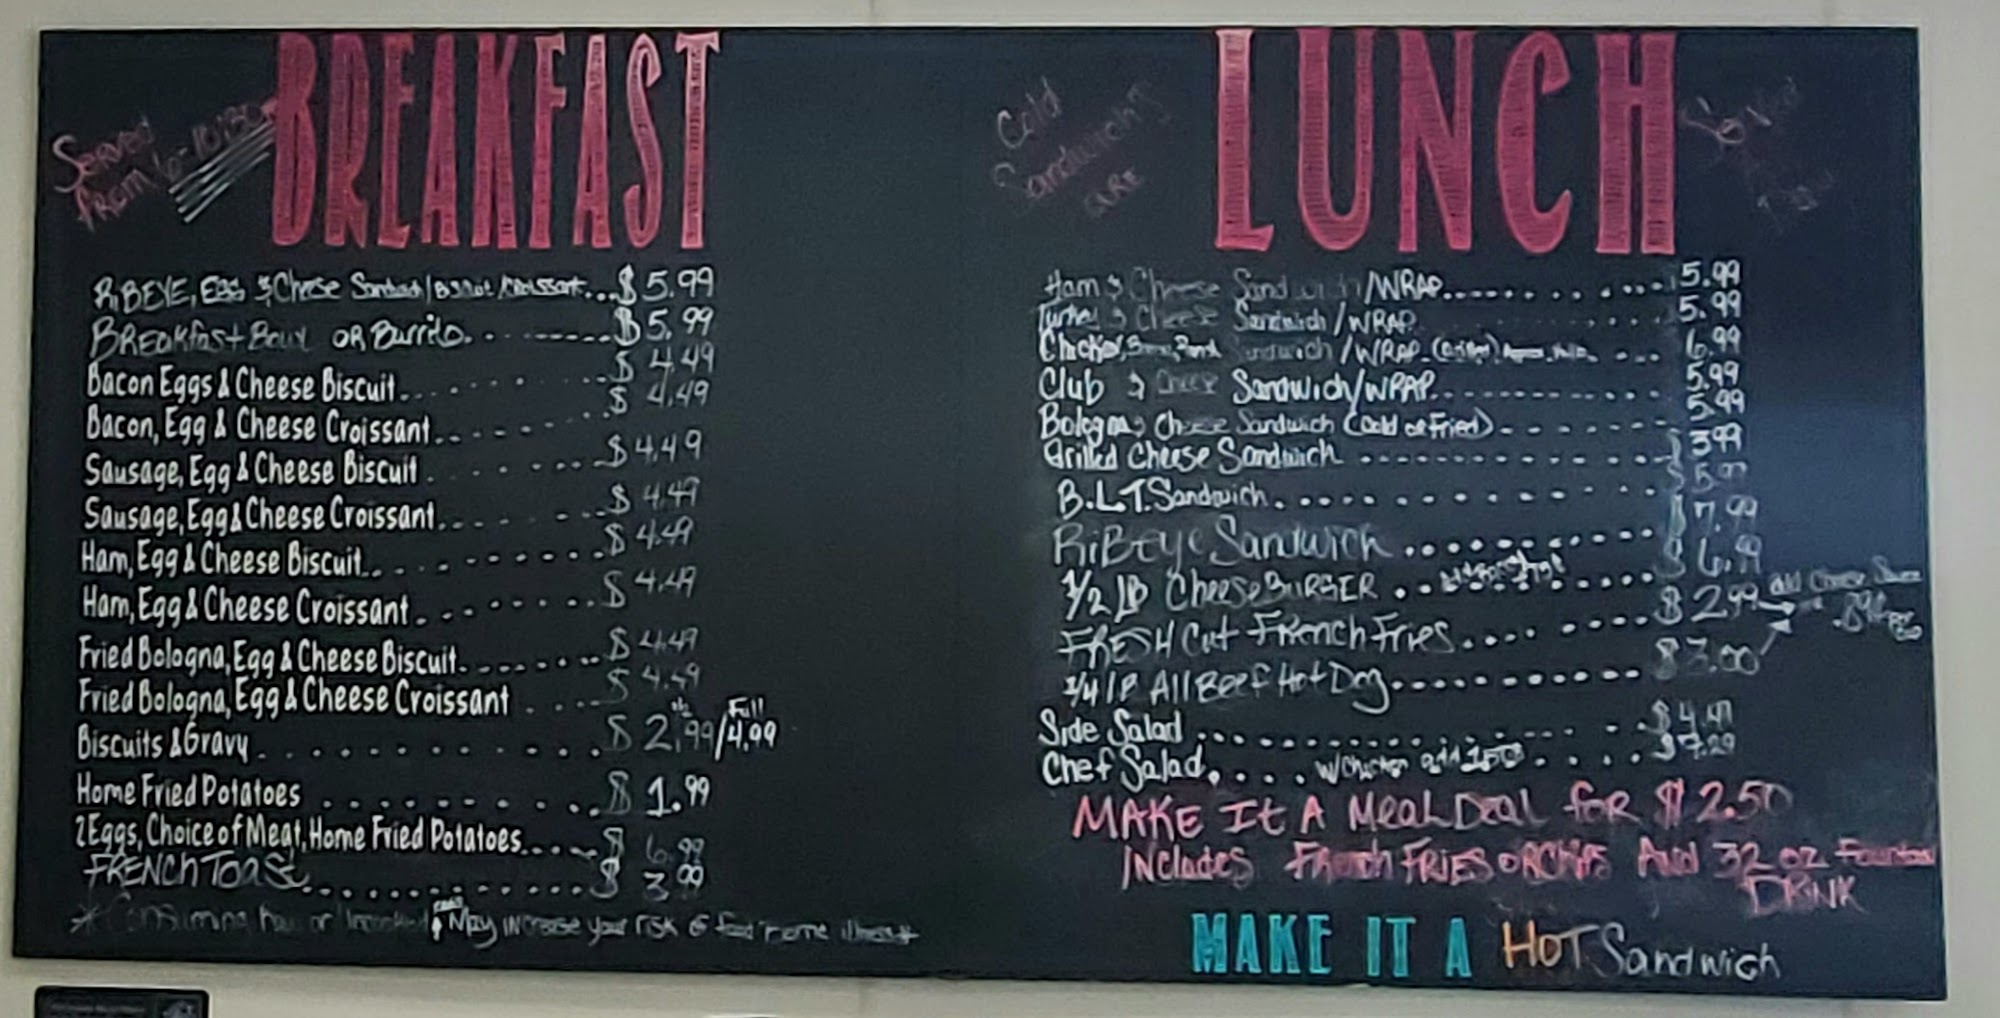 BREAKFAST
Served
from 6-10:30
RiBEYE, Egg & Cheese Sandwich/Biscuit/Croissant...$5.99
BREAKfast Bowl OR Burrito.......$5.99
Bacon Eggs & Cheese Biscuit.......$4.49
Bacon, Egg & Cheese Croissant.......$4.49
Sausage, Egg & Cheese Biscuit.......$4.49
Sausage, Egg & Cheese Croissant.......$4.49
Ham, Egg & Cheese Biscuit.......$4.49
Ham, Egg & Cheese Croissant.......$4.49
Fried Bologna, Egg & Cheese Biscuit.......$4.49
Fried Bologna, Egg & Cheese Croissant....$4.49
Biscuits & Gravy.......$2.99/Full 4.99
Home Fried Potatoes.......$1.99
2 Eggs, Choice of Meat, Home Fried Potatoes....$6.99
FRENCH Toast.......$3.99
*Consuming raw or May increase your risk of illness*
LUNCH
Cold
Sandwich's
ARE
Ham & Cheese Sandwich/WRAP.......5.99
Turkey & Cheese Sandwich/WRAP.......5.99
Chicken, Sandwich/WRAP.......6.99
Club & Cheese Sandwich/WRAP.......5.99
Bologna & Cheese Sandwich (Cold or Fried).......5.99
Grilled Cheese Sandwich.......$3.99
B.L.T. Sandwich.......$5.99
RiBEye Sandwich.......$7.99
1/2 LB CheeseBURGER.......$6.99
FRESH Cut French Fries.......$2.99
add Cheese Sauce
1/4 lb All Beef Hot Dog.......$3.00
Side Salad.......$4.49
Chef Salad....w/Chicken add 1.50....$7.29
MAKE It A Meal Deal for $2.50
INcludes French FRIES OR CHIPS And 32 oz Fountain
DRINK
MAKE IT A HOT Sandwich